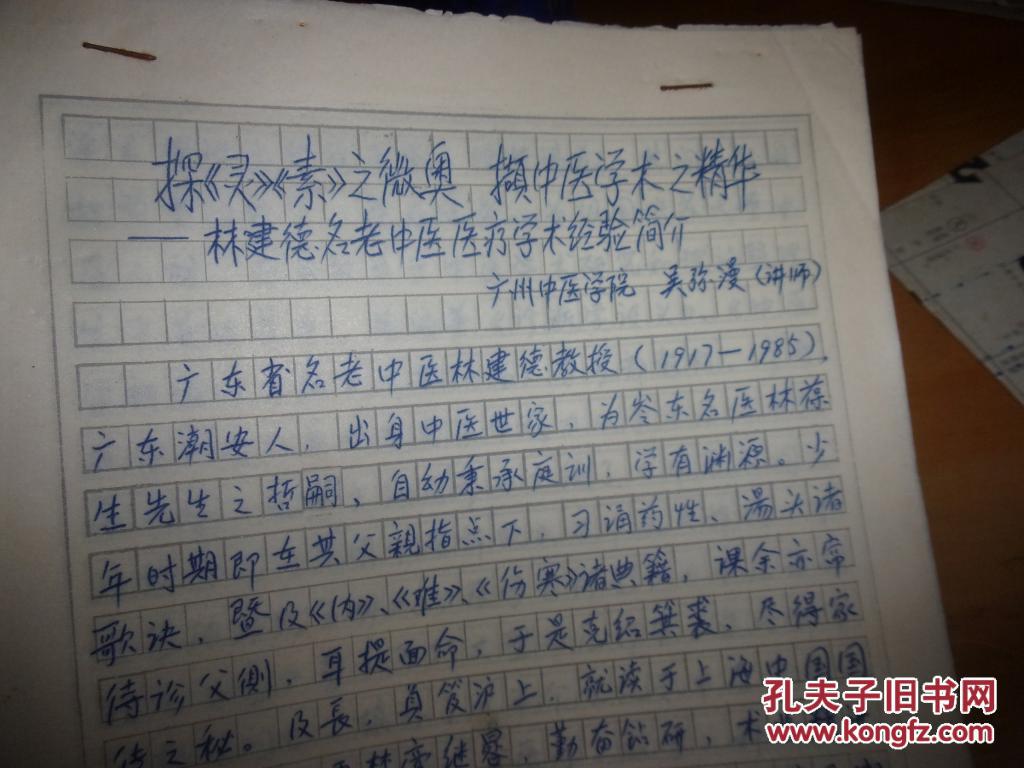 探《灵》《素》之微奥 撷中医学术之精华
—— 林建德名老中医医疗学术经验简介
广州中医学院 吴弥漫（讲师）
广东省名老中医林建德教授（1917—1985），
广东潮安人，出身中医世家，为岭东名医林荪
生先生之哲嗣，自幼秉承庭训，学有渊源。少
年时期即在其父亲指点下，习诵药性、汤头诸
歌诀，暨及《内》、《难》、《伤寒》诸典籍，课余亦常
侍诊父侧，耳提面命，于是克绍箕裘，尽得家
传之秘。及長，負笈沪上，就读于上海中国国
继晷，勤奋钻研，术
孔夫子旧书网
www.kongfz.com